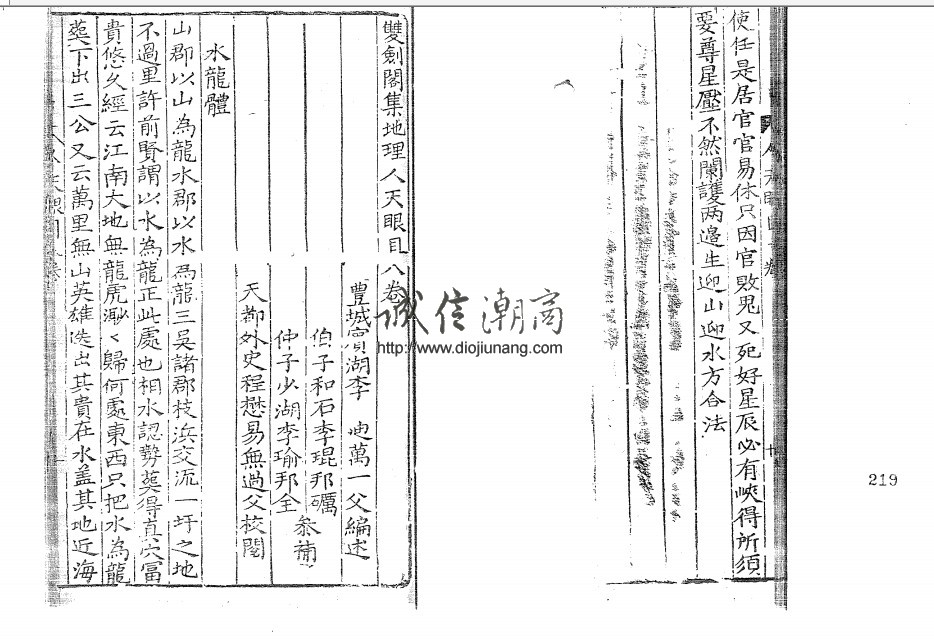 使任是居官官易休只因官敗鬼又死好星辰必有峽得所須
要尊星壓不然闌護两邉生迎山迎水方合法
219
雙劍閣集地理人天眼目八卷
豊城賓湖李 迪萬一父編述
伯子和石李琨邦礪
仲子少湖李瑜邦全
叅補
天都外史程懋易無過父校閱
水龍體
山郡以山為龍水郡以水為龍三吳諸郡枝浜交流一圩之地
不過里許前賢謂以水為龍正此處也相水認勢葬得真穴冨
貴悠久經云江南大地無龍虎漞〻歸何處東西只把水為龍
葬下出三公又云萬里無山英雄迭出其貴在水盖其地近海
诚信潮商
http://www.diojiunang.com